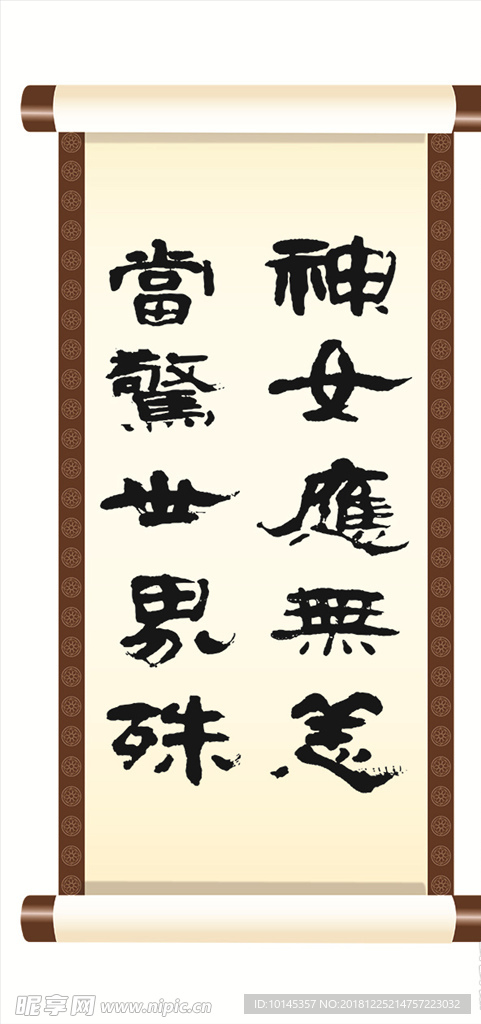 神女應無恙
當驚世界殊
昵享网 www.nipic.cn
ID:10145357 NO:20181225214757223032